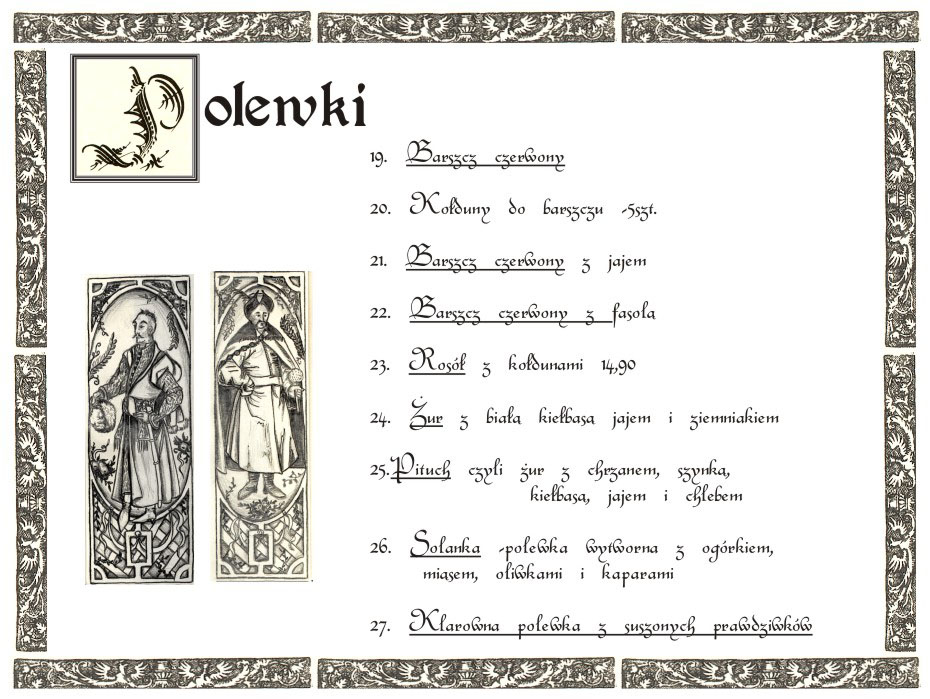 Polewki
19. Barszcz czerwony
20. Kołduny do barszczu -5szt.
21. Barszcz czerwony z jajem
22. Barszcz czerwony z fasolą
23. Rosół z kołdunami 14,90
24. Żur z białą kiełbasą jajem i ziemniakiem
25. Pituch czyli żur z chrzanem, szynką,
kiełbasą, jajem i chlebem
26. Solanka -polewka wytworna z ogórkiem,
mięsem, oliwkami i kaparami
27. Klarowna polewka z suszonych prawdziwków